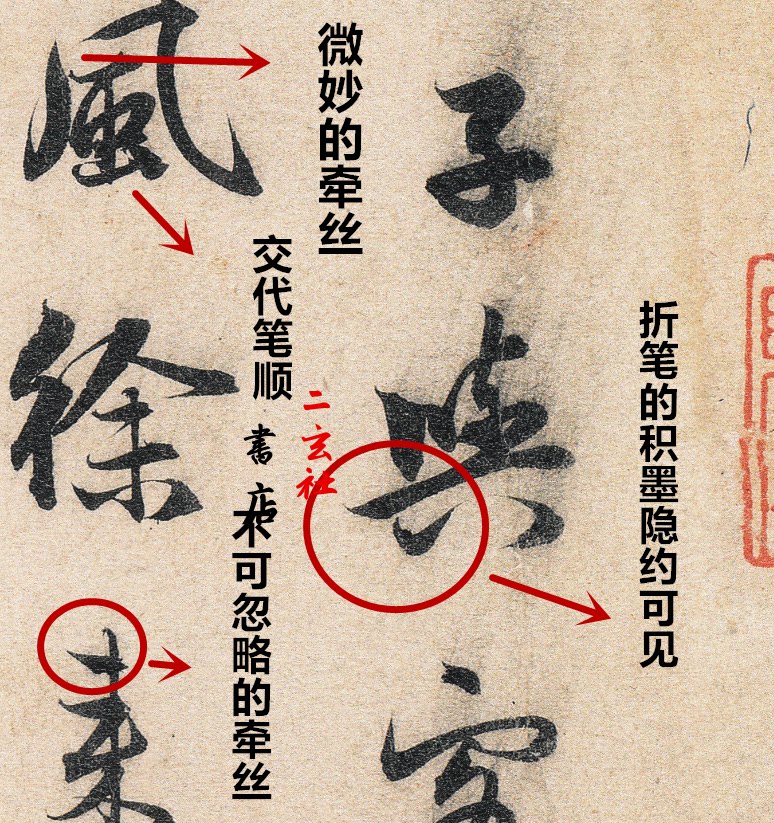 折笔的积墨隐约可见
子與客
微妙的牵丝
二玄社
交代笔顺
書店
不可忽略的牵丝
風徐来